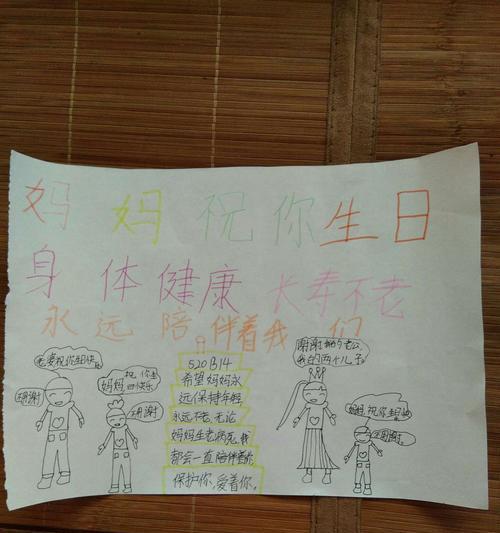 妈妈祝你生日
身体健康 长寿不老
永远陪伴着我们
老婆祝你生日快乐
谢谢
妈妈祝你生日快乐
谢谢
5201314
希望妈妈永
远保持年轻
永远不老,无论
妈妈生老病死,我
都会一直陪伴着你,
保护你,爱着你。
谢谢
我的两个儿子
妈妈,祝你生日
谢谢